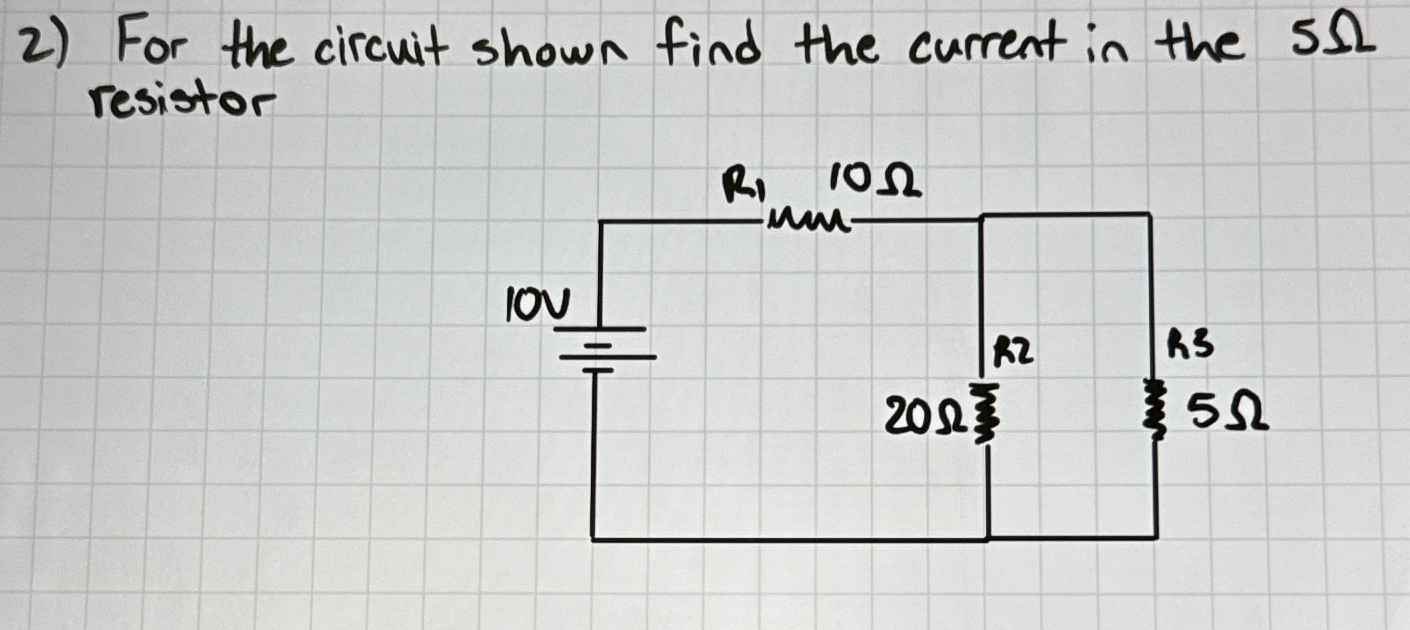 2) For the circuit shown find the current in the 5Ω
resistor
R1 10Ω
10V
R2
R3
20Ω
5Ω